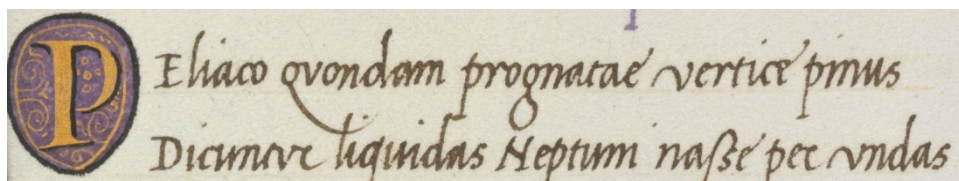 PEliaco qvondam prognatae vertice pinus
Dicuntvr liquidas Neptuni naße per vndas